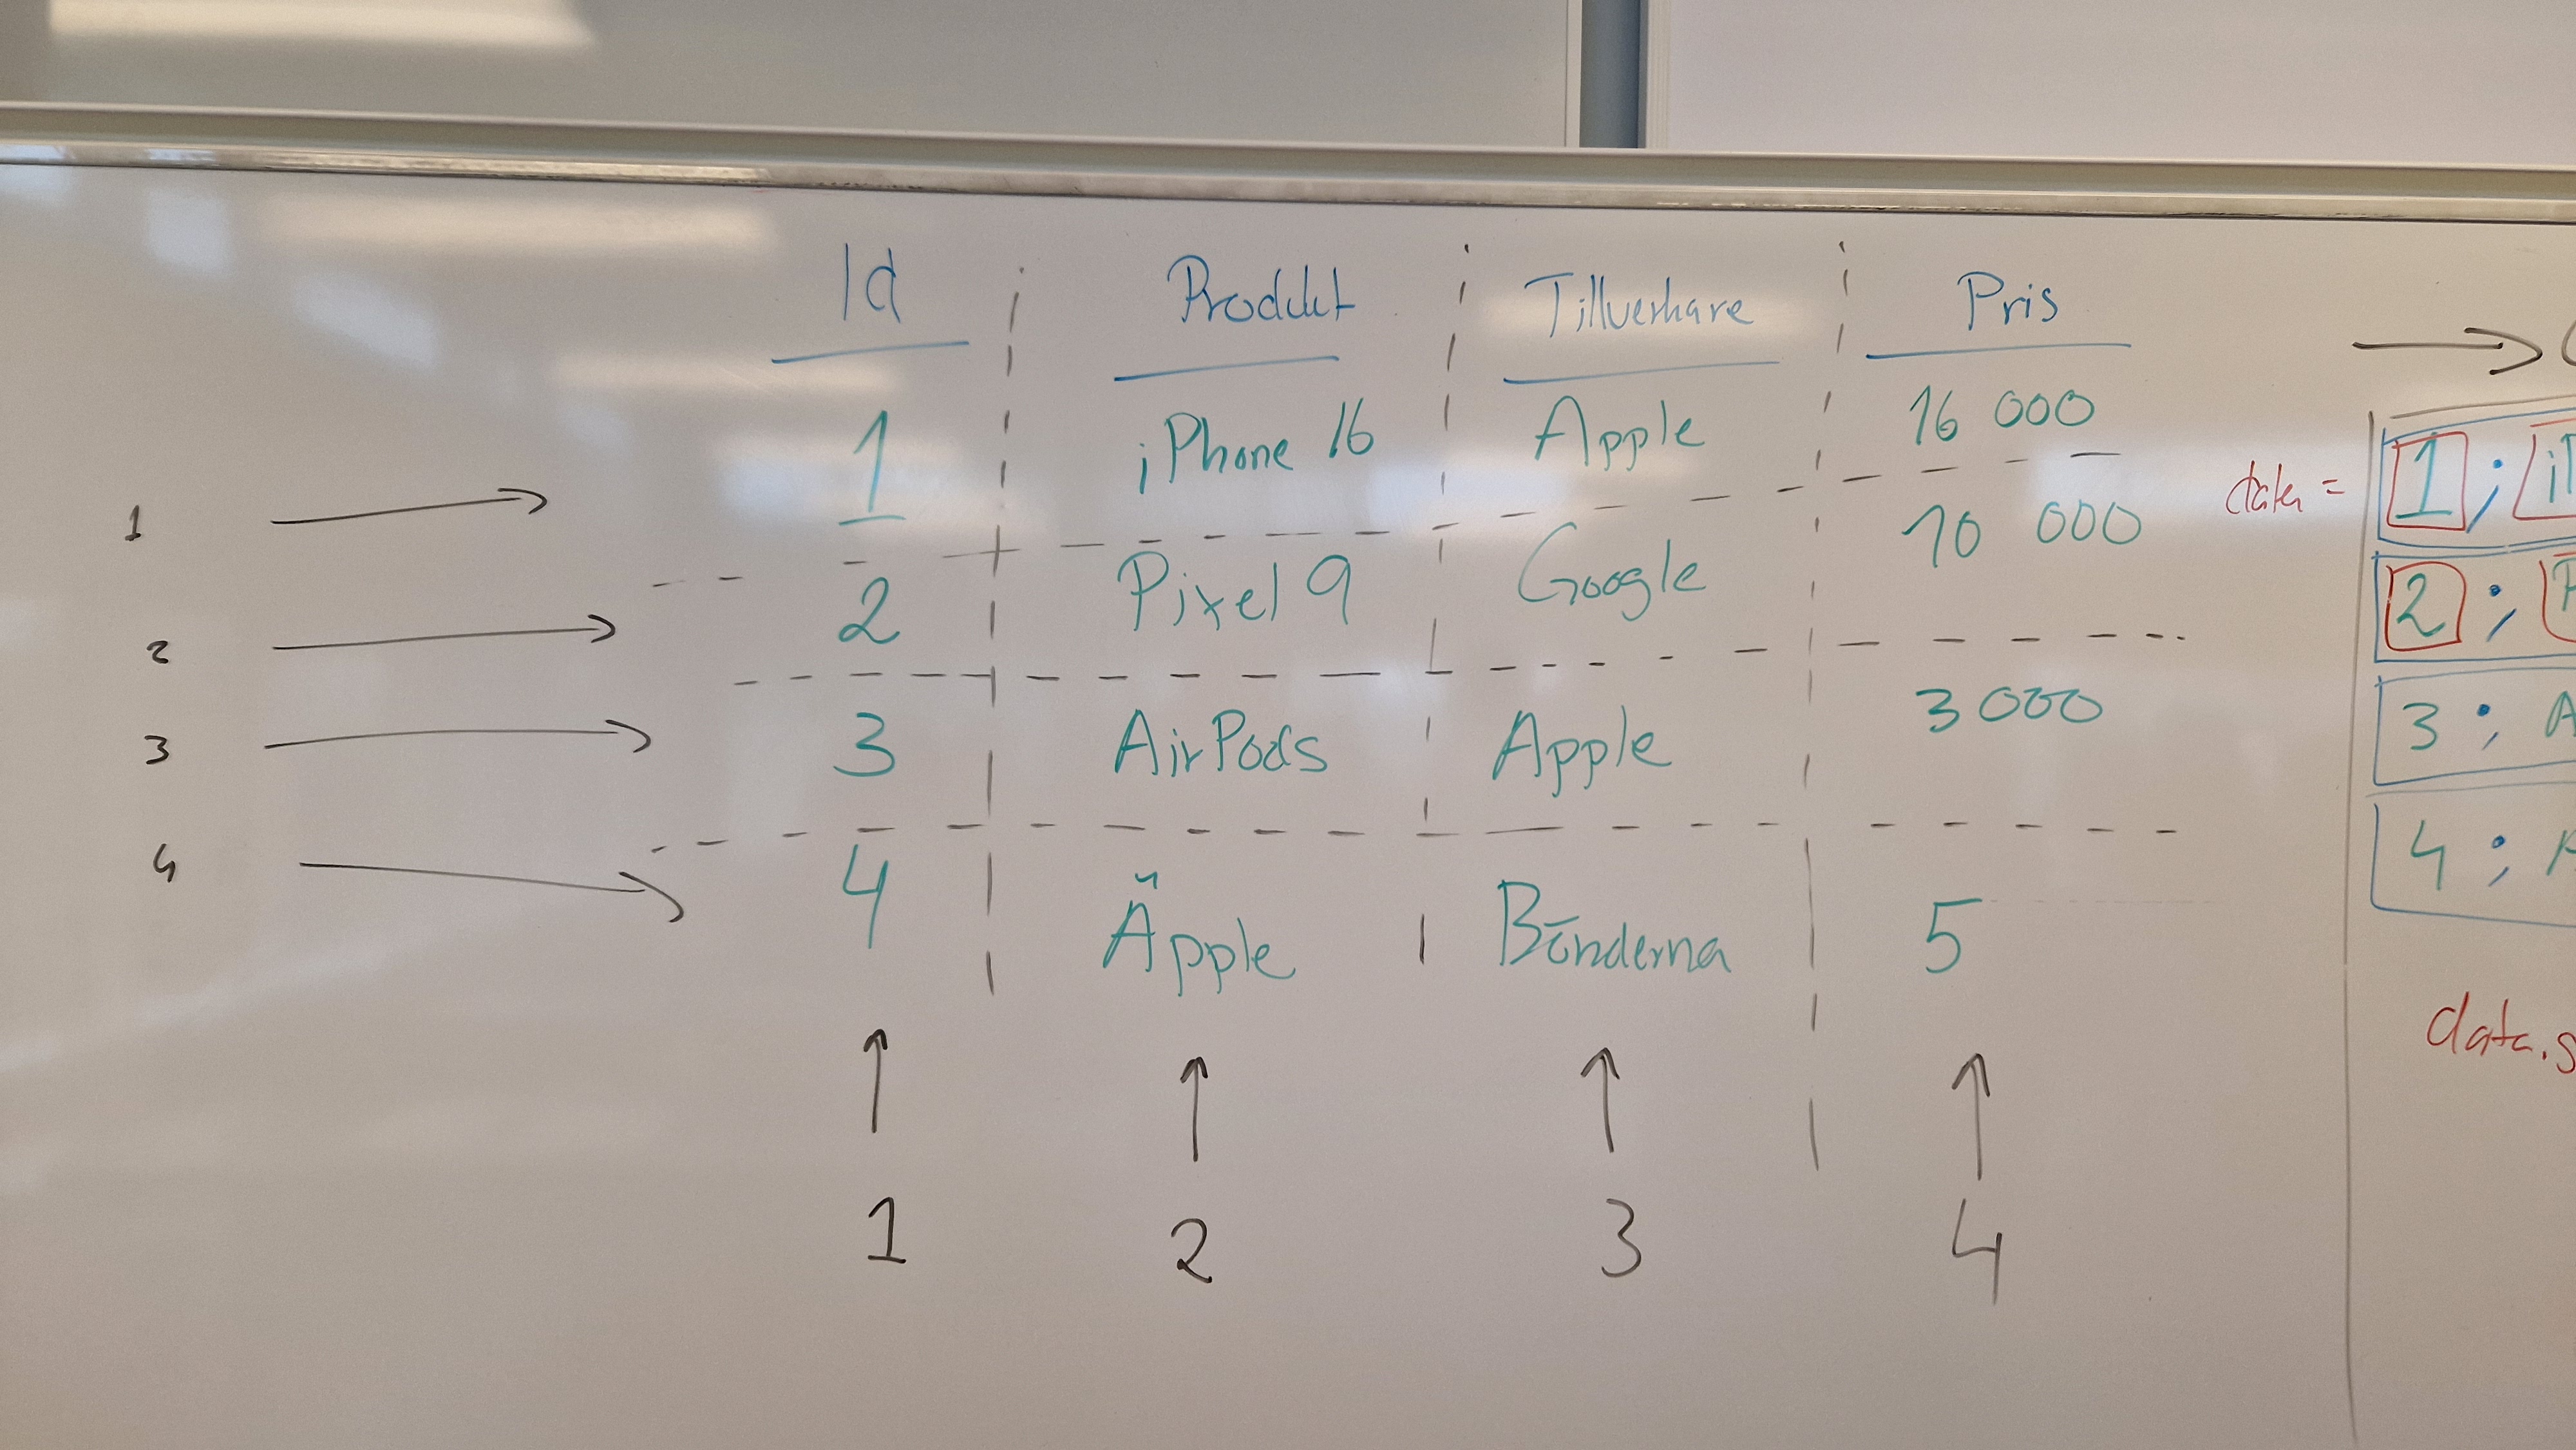 Id Produkt Tillverkare Pris
1 1 iPhone 16 Apple 16 000
2 2 Pixel 9 Google 10 000
3 3 AirPods Apple 3 000
4 4 Äpple Bönderna 5
1 2 3 4
data =
1 ;
2 ;
3 ; A
4 ;
data.s